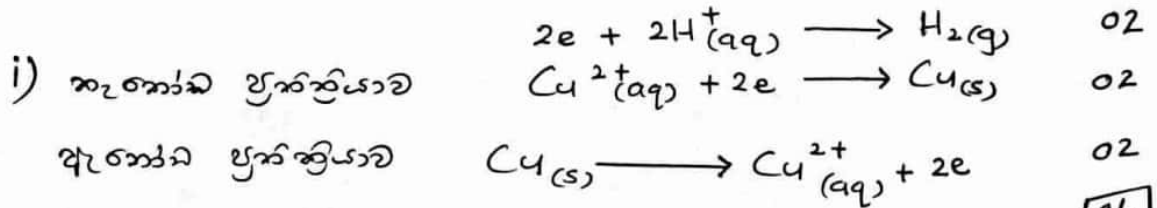 2e + 2H⁺(aq) ⟶ H₂(g) 02
i) කැතෝඩ ප්‍රතික්‍රියාව Cu²⁺(aq) + 2e ⟶ Cu(s) 02
ඇනෝඩ ප්‍රතික්‍රියාව Cu(s) ⟶ Cu²⁺(aq) + 2e 02